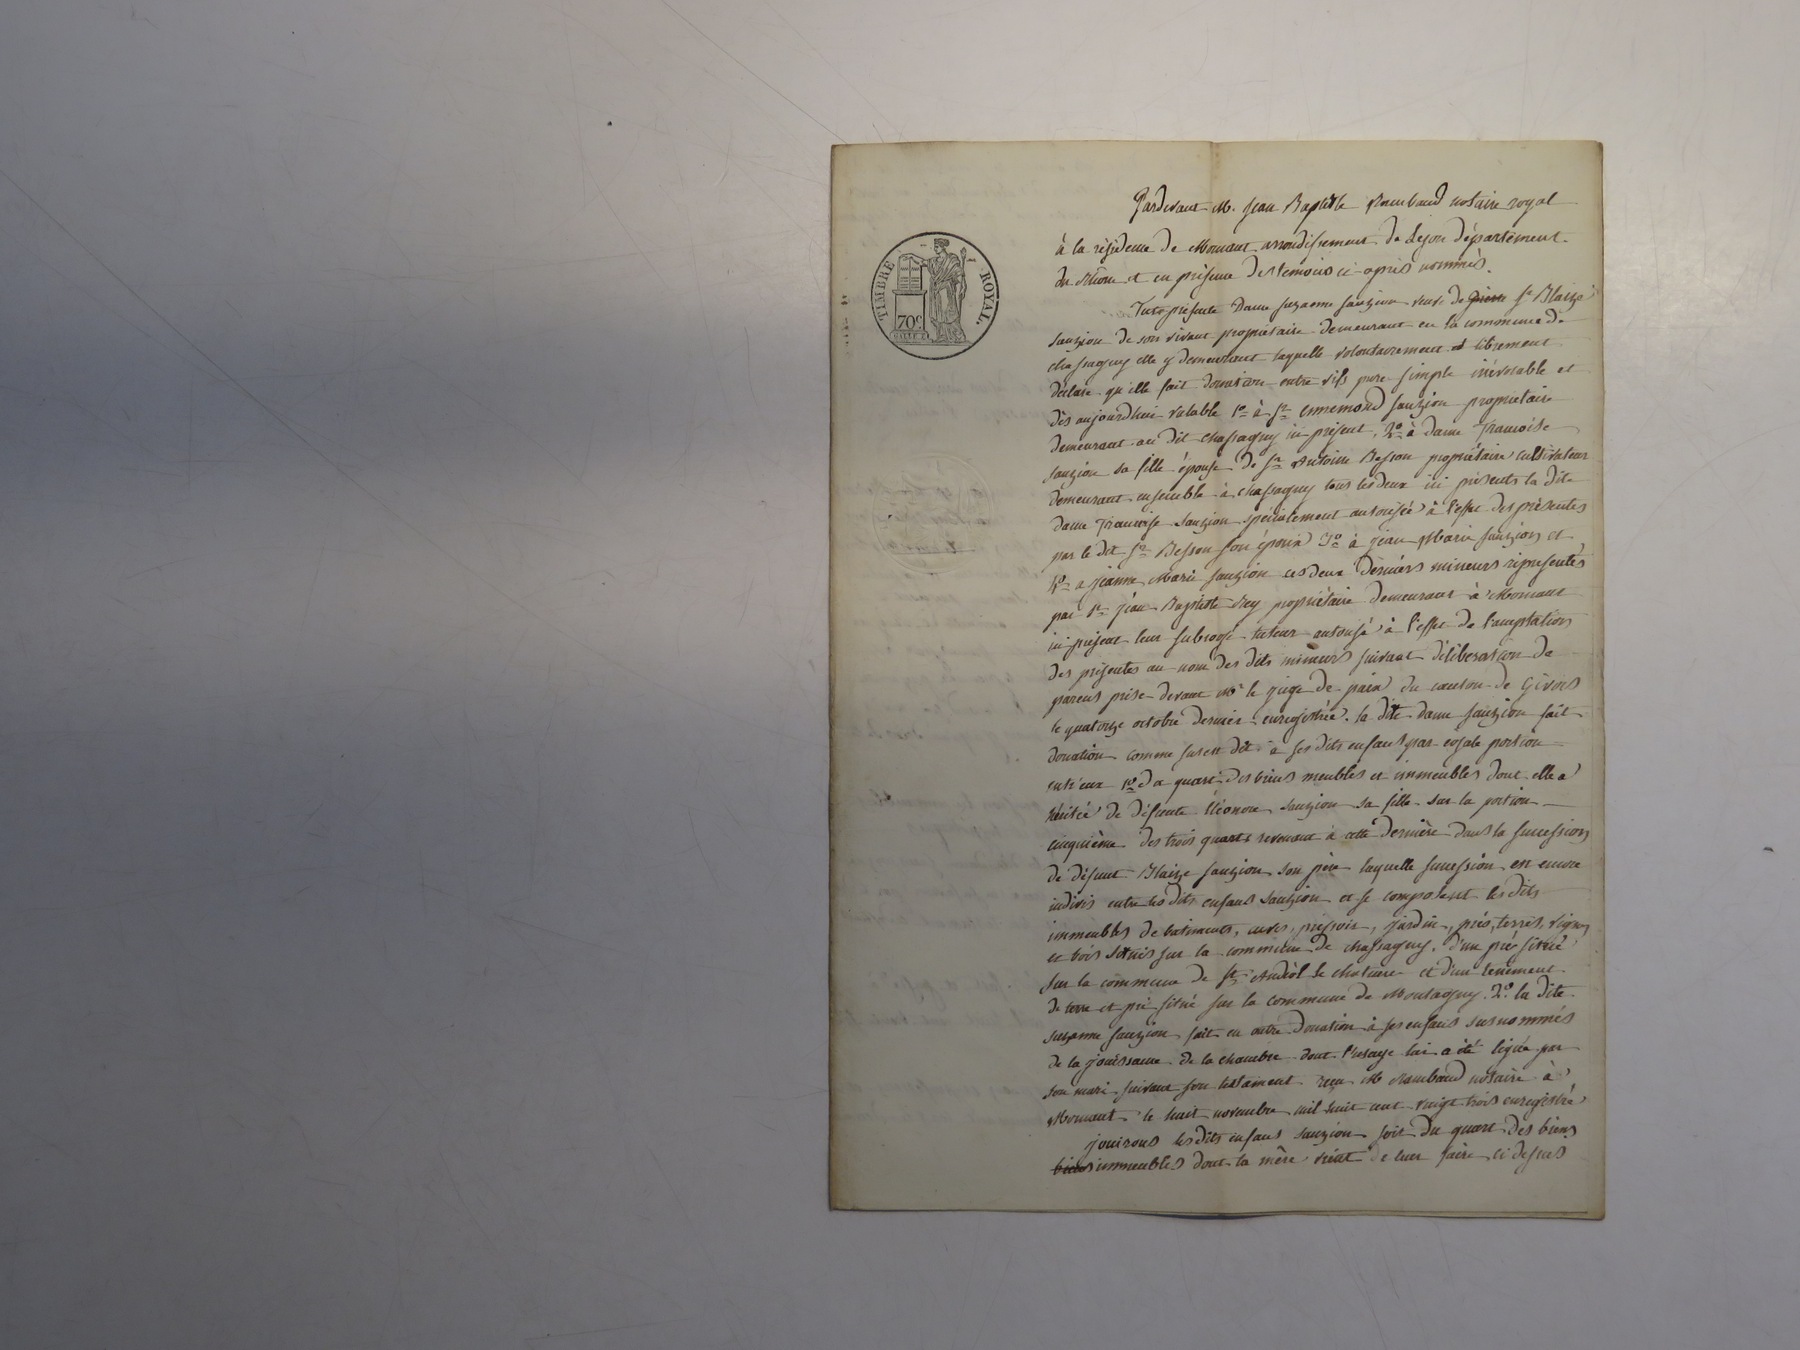 TIMBRE ROYAL.
70c
Pardevant M. Jean Baptiste Rambaud notaire royal
à la résidence de Mornant arrondissement de Lyon département
du Rhône et en présence des temoins ci-après nommés.
Fut présente Dame suzanne sauzion veuve de pierre sr Blaize
sauzion de son vivant propriétaire demeurant en la commune de
chassagny elle y demeurant laquelle volontairement et librement
déclare qu'elle fait donation entre vifs pure simple irévocable et
dès aujourd'hui valable 1o à sr Ennemond sauzion propriétaire
demeurant au dit chassagny ici présent, 2o à dame Francoise
sauzion sa fille épouse de sr Antoine Besson propriétaire cultivateur
demeurant ensemble à chassagny tous les deux ici présents la dite
dame Francoise sauzion spécialement autorisée à l'effet des présentes
par le dit sr Besson son époux 3o à jean Marie sauzion et
4o a jeanne Marie sauzion ces deux derniers mineurs représentés
par sr jean Baptiste Rey propriétaire demeurant à Mornant
ici présent leur subrogé tuteur autorisé à l'effet de l'acceptation
des présentes au nom des dits mineurs suivant déliberation de
parens prise devant Mr le juge de paix du canton de Givors
le quatorze octobre dernier enregistrée. la dite dame sauzion fait
donation comme sus est dit à ses dits enfans par égale portion
entr'eux 1o du quart des biens meubles et immeubles dont elle a
hérité de défunte Eléonore sauzion sa fille sur la portion
cinquième des trois quarts revenant à cette dernière dans la succession
de défunt Blaize sauzion son père laquelle succession en encore
indivis entre les dits enfans sauzion et se composent les dits
immeubles de batiments, cuves, pressoir, jardin, prés, terres, vignes
et bois situés sur la commune de chassagny, d'un pré situé
sur la commune de St Andéol le chateau et d'un tenement
de terre et pré situé sur la commune de Montagny. 2o la dite
suzanne sauzion fait en outre donation à ses enfans susnommés
de la jouissance de la chambre dont l'usage lui a été légué par
son mari suivant son testament reçu Me Rambaud notaire à
Mornant le huit novembre mil huit cent vingt trois enregistré
jouirons les dits enfans sauzion soit du quart des biens
biens immeubles dont la mère vient de leur faire ci dessus